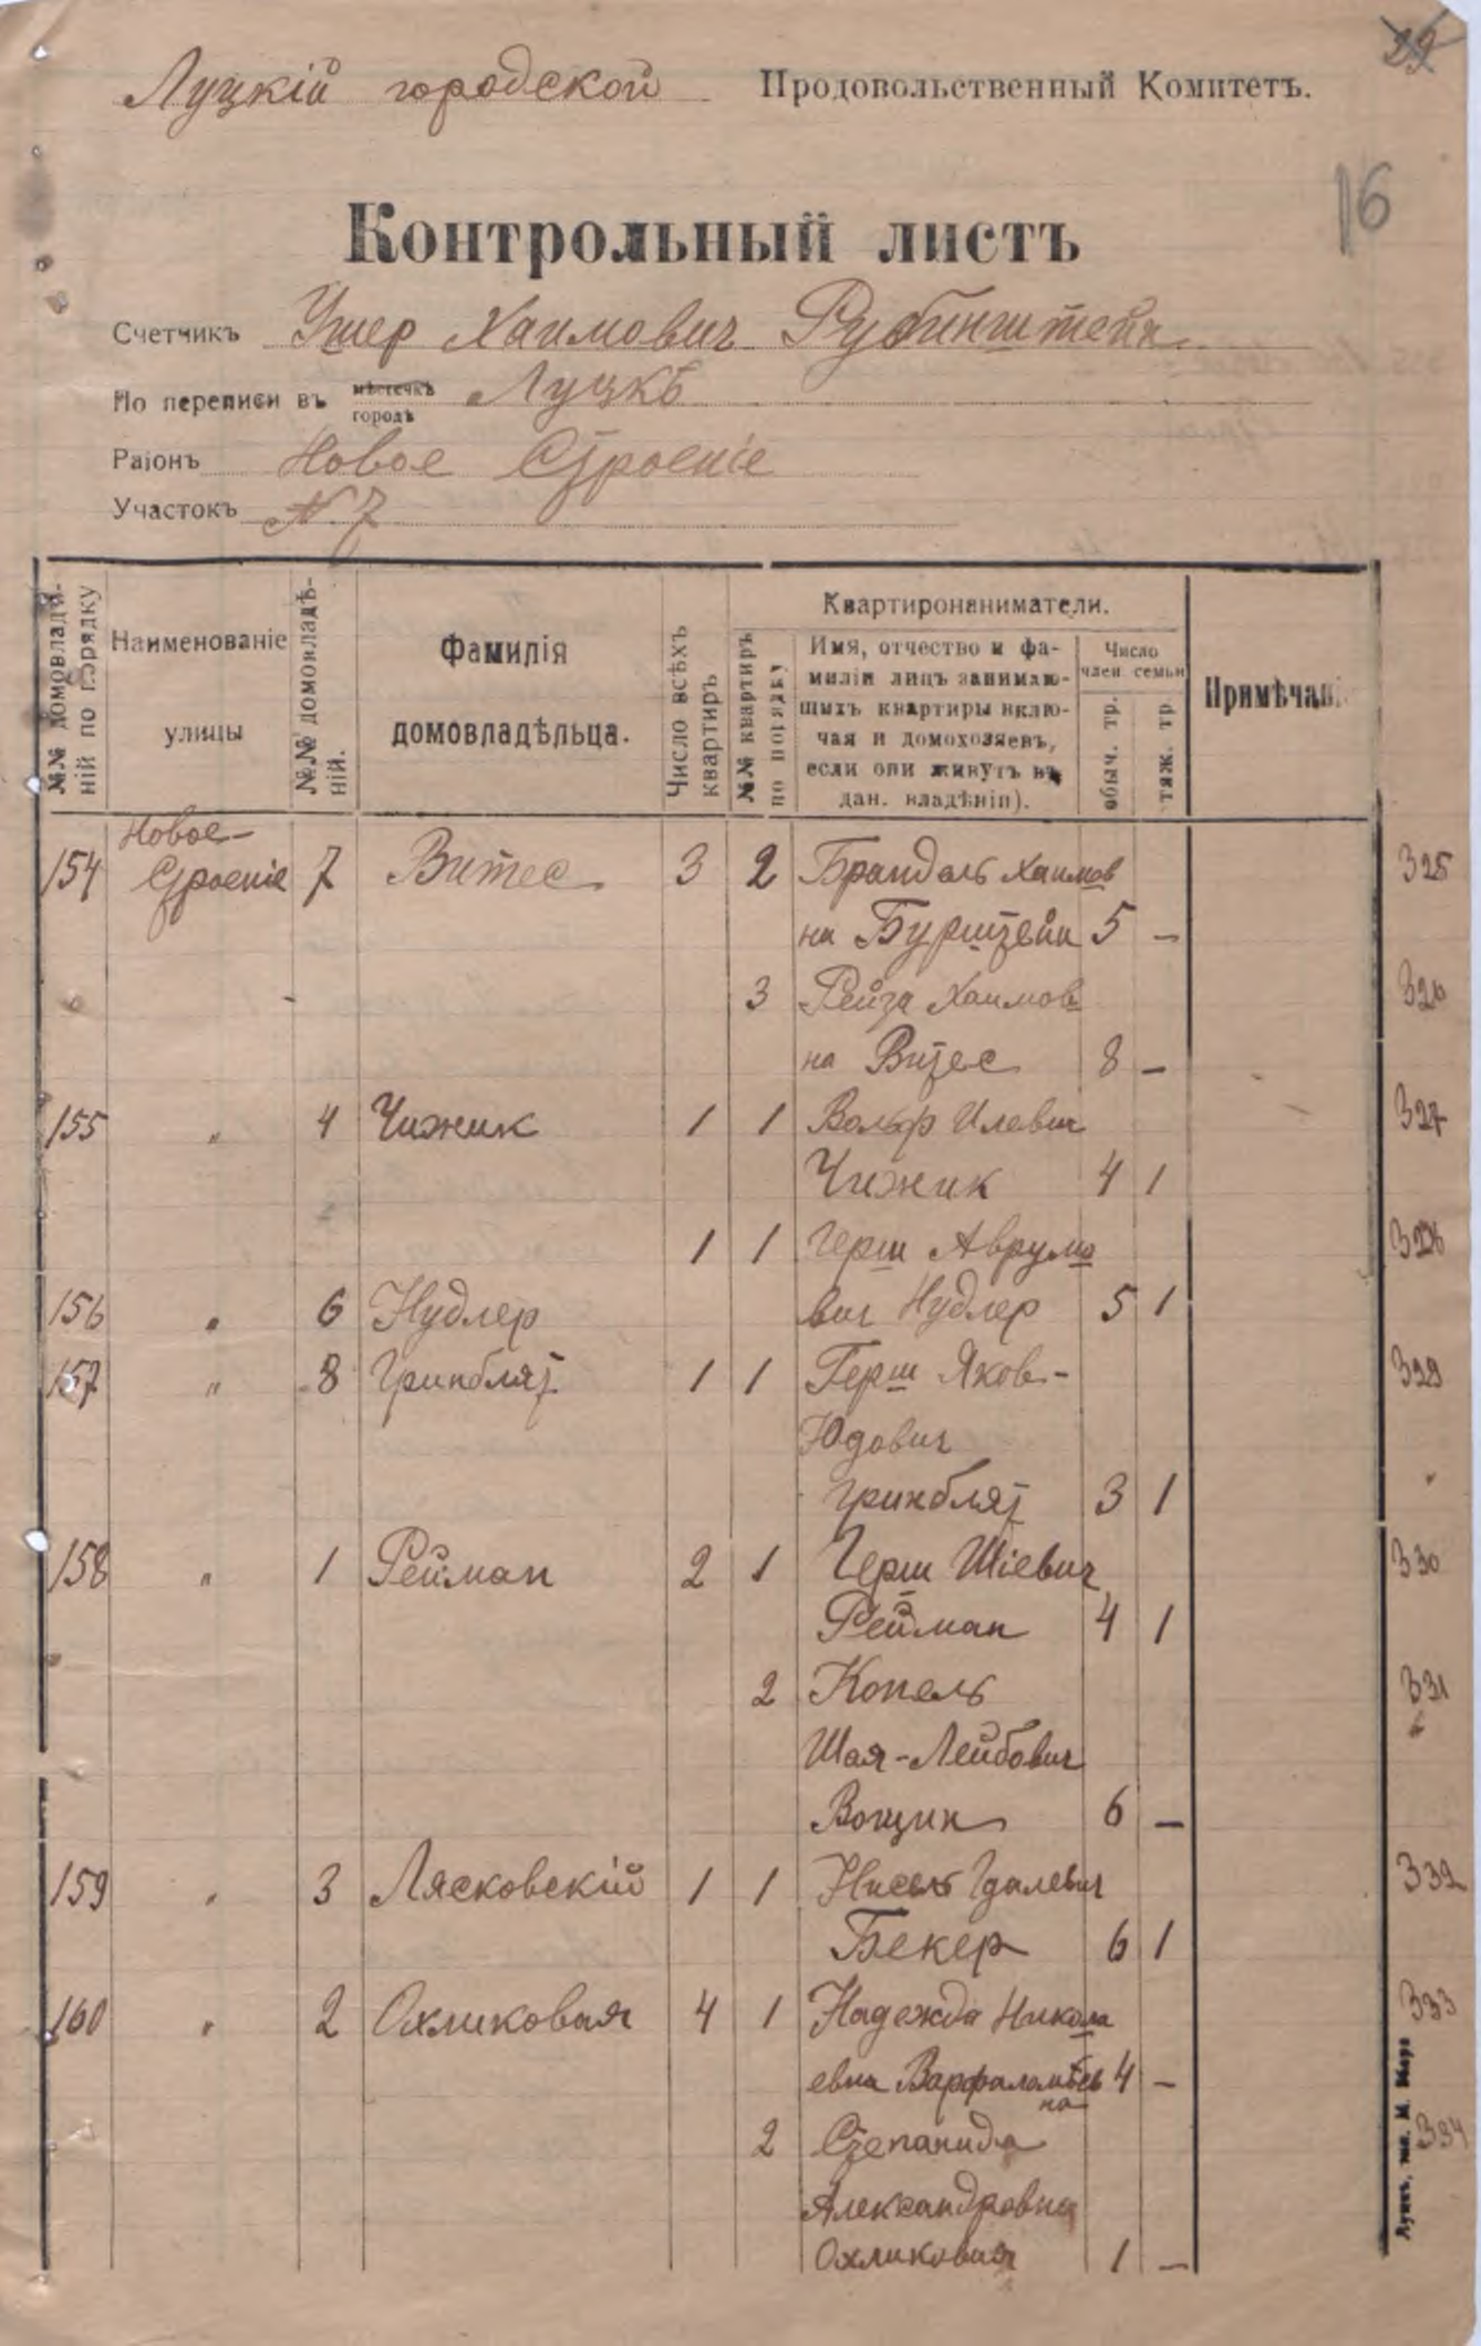 Луцкій городской Продовольственный Комитетъ.
29
16
Контрольный листъ
Счетчикъ Ушер Хаимович Рубинштейн
По переписи въ мѣстечкѣ городѣ Луцкѣ
Раіонъ Новое Строеніе
Участокъ N 7
№№ домовладѣній по порядку
Наименованіе улицы
№№ домовладѣній.
Фамилія домовладѣльца.
Число всѣхъ квартиръ
Квартиронаниматели.
№№ квартиръ по порядку
Имя, отчество и фа-
миліи лицъ занимаю-
щихъ квартиры вклю-
чая и домохозяевъ,
если они живутъ въ
дан. владѣніи).
Число
член. семьи
обыч. тр.
тяж. тр.
Примѣчані
Новое-
154 Строеніе 7 Витес 3 2 Брандль Хаимов 325
на Бурштейн 5 -
3 Рейза Хаимов 326
на Витес 8 -
155 " 4 Чижик 1 1 Вольф Илевич 327
Чижик 4 1
1 1 Герш Аврумо 328
156 " 6 Нудлер вич Нудлер 5 1
157 " 8 Гринблят 1 1 Герш Яков- 329
Юдович
Гринблят 3 1
158 " 1 Рейман 2 1 Герш Шіевич 330
Рейман 4 1
2 Копель 331
Шая-Лейбович
Вощин 6 -
159 " 3 Лясковскій 1 1 Нисель Гдалевич 332
Бекер 6 1
160 " 2 Охликовая 4 1 Надежда Никола 333
евна Варфаламѣев 4 -
на
2 Степанида 334
Александровна
Охликовая 1 -
Луцкъ, тип. М.